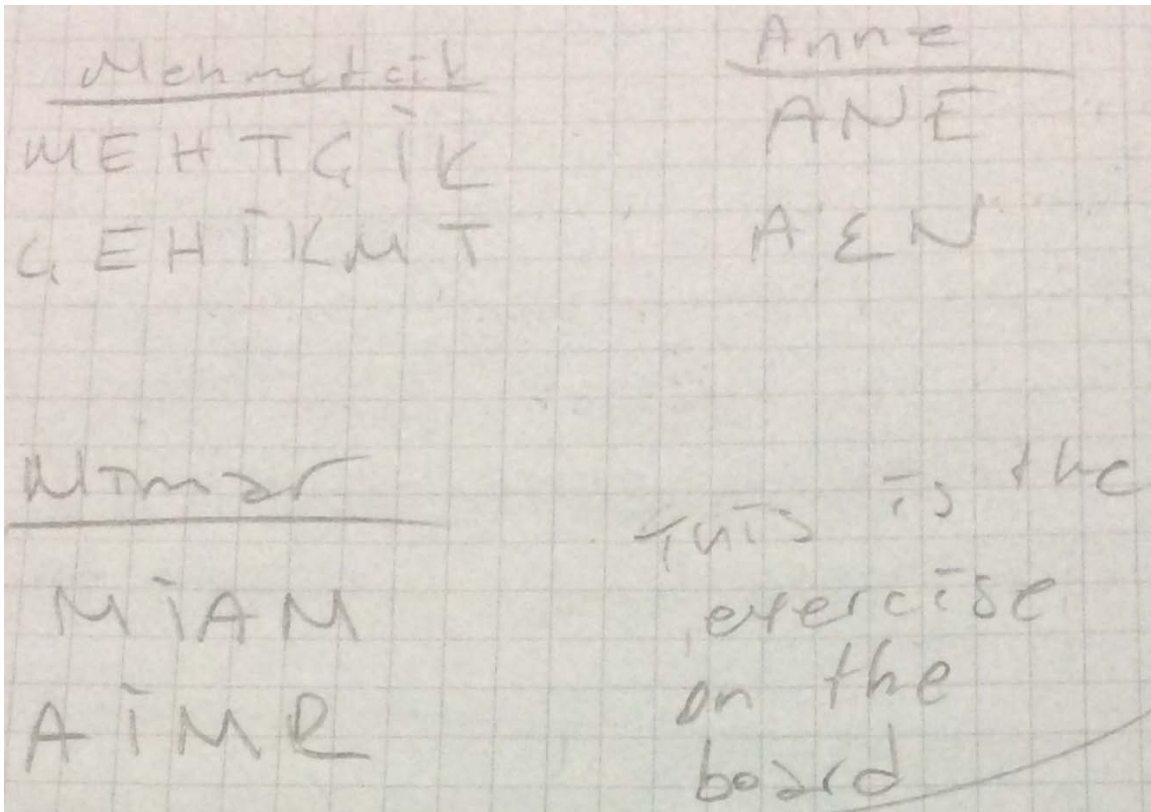 Mehmetcik
MEHTCİK
CEHİKMT
Anne
ANE
AEN
Mimar
MİAM
AİMR
this is the
exercise
on the
board